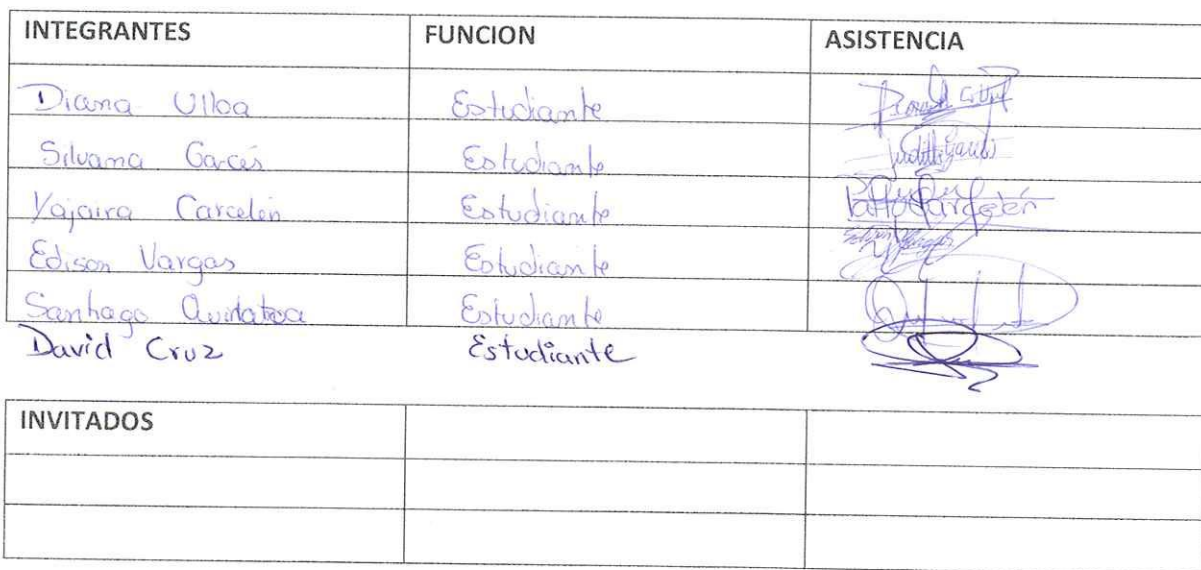 INTEGRANTES FUNCION ASISTENCIA
Diana Ulloa Estudiante
Silvana Garcés Estudiante Judith Garcés
Yajaira Carcelén Estudiante Carcelén
Edison Vargas Estudiante Edison Vargas
Santiago Estudiante
David Cruz Estudiante
INVITADOS